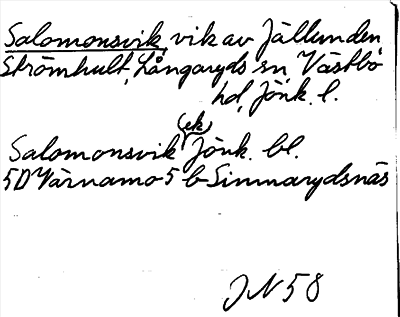 Salomonsvik, vik av Jällunden
Strömhult, Långaryds sn, Västbo
hd, Jönk. l.
Salomonsvik (ek) Jönk. bl.
5D Värnamo 5 b Simmarydsnäs
JN 58